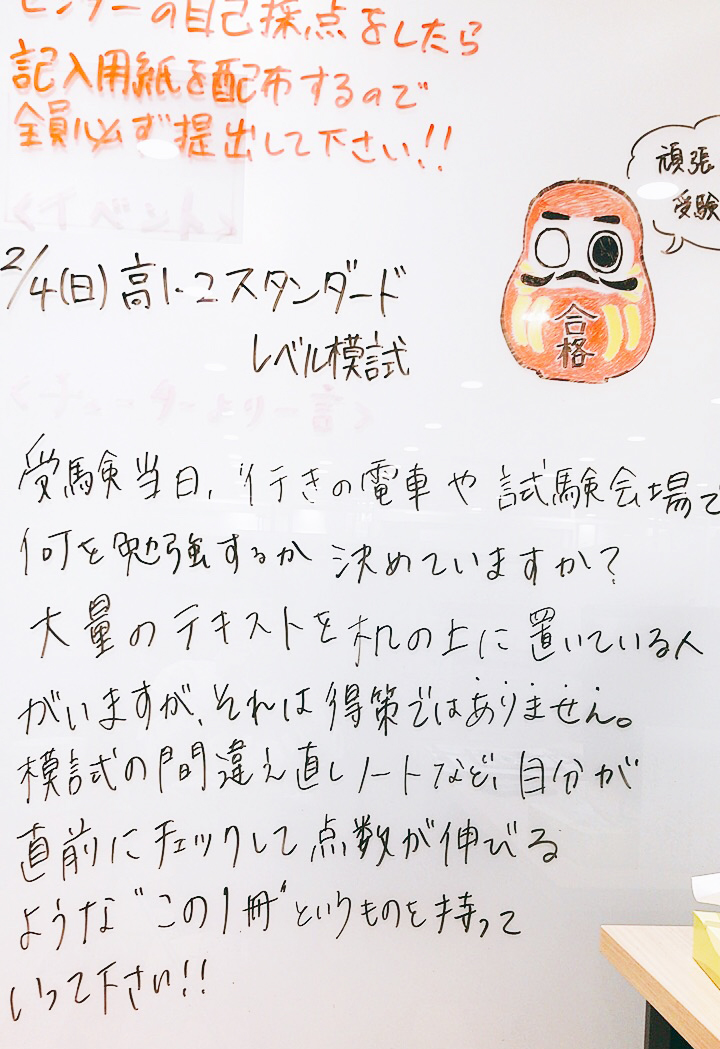 センターの自己採点をしたら
記入用紙を配布するので
全員必ず提出して下さい!!
頑張
受験
合格
2/4(日)高1・2スタンダード
レベル模試
受験当日、行きの電車や試験会場で
何を勉強するか決めていますか?
大量のテキストを机の上に置いている人
がいますが、それは得策ではありません。
模試の間違え直しノートなど、自分が
直前にチェックして点数が伸びる
ような“この1冊”というものを持って
いって下さい!!